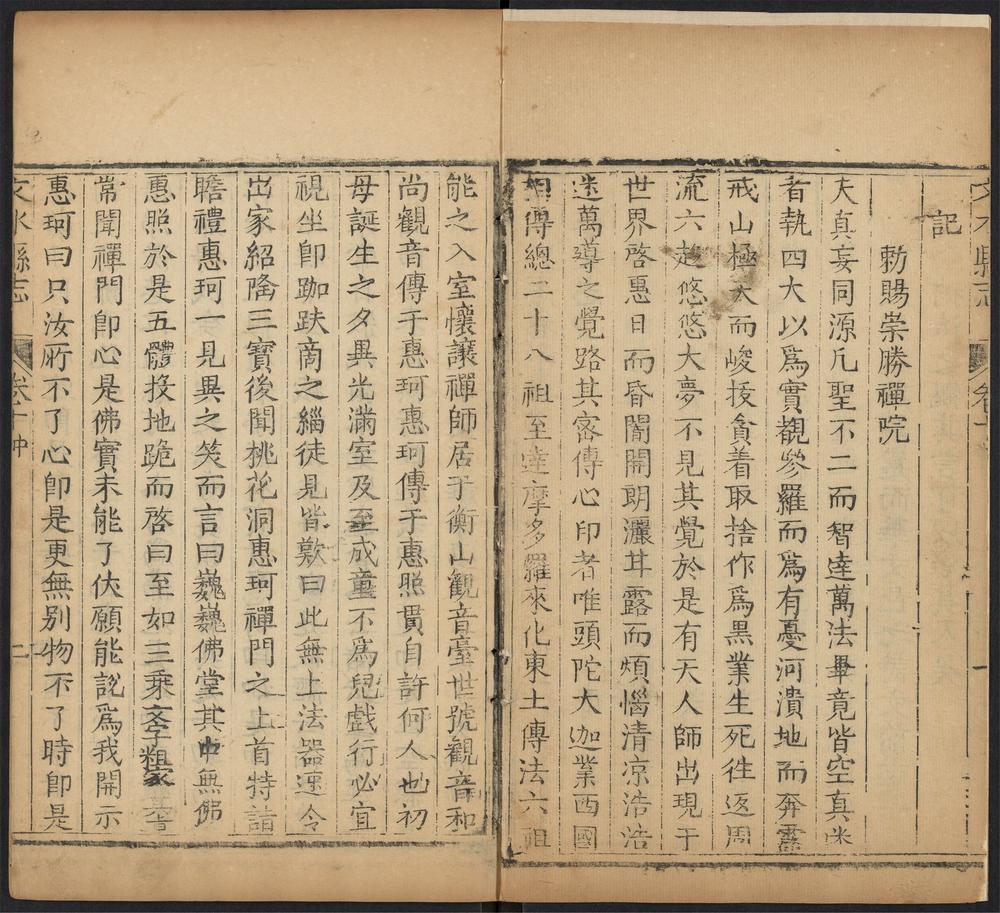 文水縣志 卷十 一
記
勅賜崇勝禪院
夫真妄同源凡聖不二而智達萬法畢竟皆空真迷
者執四大以爲實觀叅羅而爲有憂河潰地而奔靈
戒山極天而峻拔貪着取捨作爲黒業生死徃返周
流六趣悠悠大夢不見其覺於是有天人師出現于
世界啓惠日而昏闇開朗灑甘露而煩惱清凉浩浩
迷萬導之覺路其宻傳心印者唯頭陀大迦業西國
相傳總二十八祖至達摩多羅來化東土傳法六祖
能之入室懷讓禪師居于衡山觀音臺世號觀音和
尚觀音傳于惠珂惠珂傳于惠照貫自許何人也初
母誕生之夕異光滿室及至成童不爲兒戲行必宜
視坐卽跏趺裔之緇徒見皆歎曰此無上法器速令
出家紹隆三寶後聞桃花洞惠珂禪門之上首特詣
瞻禮惠珂一見異之笑而言曰巍巍佛堂其中無佛
惠照於是五體投地跪而啓曰至如三乘文字粗
常聞禪門卽心是佛實未能了伏願能說爲我開示
惠珂曰只汝所不了心卽是更無别物不了時卽是
文水縣志 卷十中 二